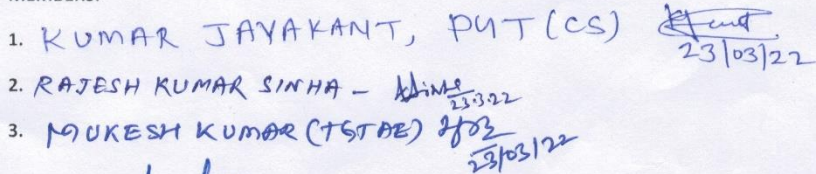 1. KUMAR JAYAKANT, PGT (CS)
23/03/22
2. RAJESH KUMAR SINHA -
23.3.22
3. MUKESH KUMAR (TGT AE)
23/03/22